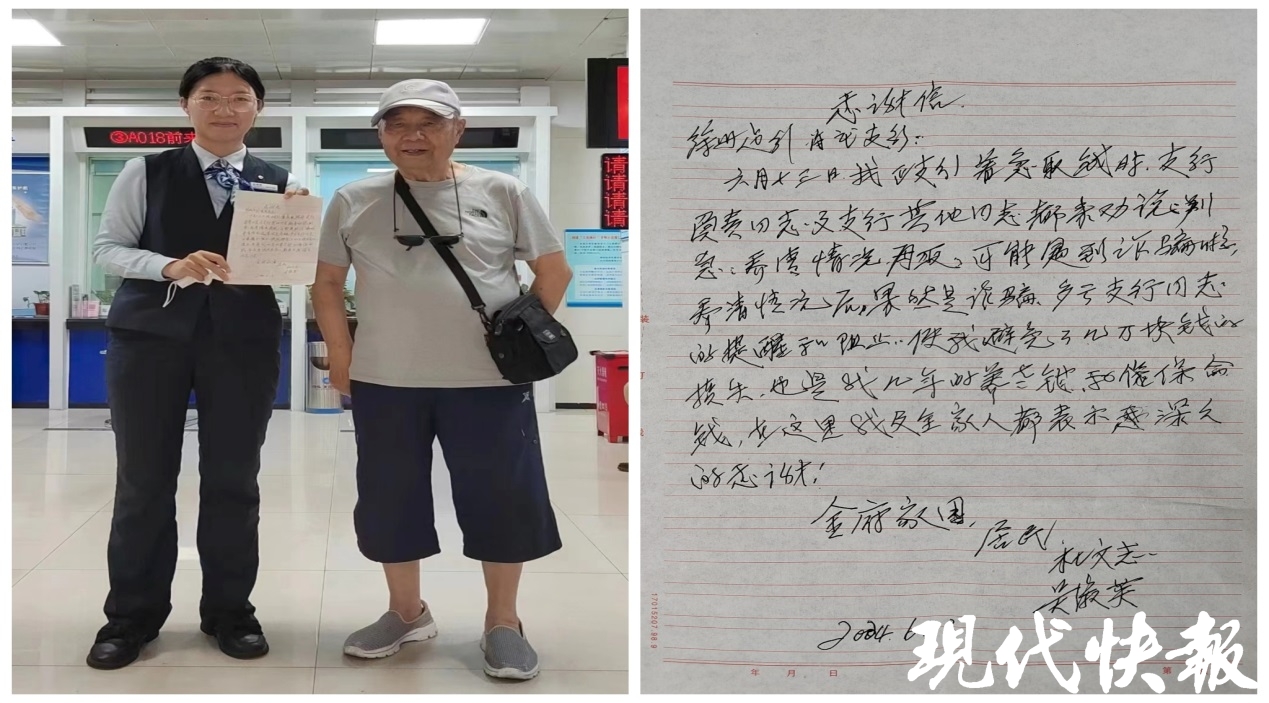 ③A018前来
请
请
请
请
THE NORTH FACE
感谢信
徐州
支行:
六月十三日我在支行着急取钱时,支行
同志及支行其他同志都来劝说别
急、弄清情况再取,可能遇到诈骗
弄清情况后,果然是诈骗、多亏支行同志
的提醒和阻止,使我避免了几万块钱的
损失,也是我几年的养老钱和
保命
钱,在这里我及全家人都表示
深文
的感谢!
金府家园
居民
杜文志
吴俊英
2024.6
年 月 日
第
装
17015207.98.9
现代快報